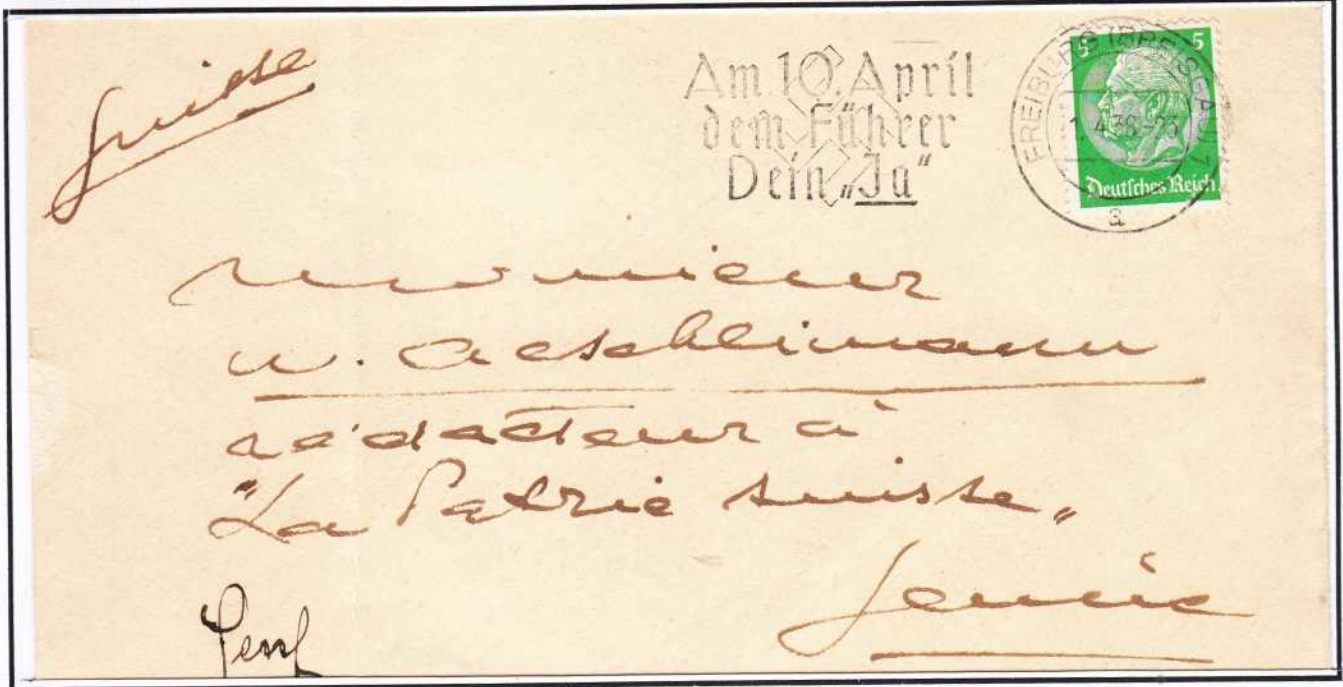 Suisse
Am 10. April
dem Führer
Dein „Ja“
FREIBURG (BREISGAU) 1
1.4.38-23
a
5 5
Deutsches Reich
Monsieur
W. Aeschlimann
rédacteur à
"La Patrie Suisse„
Genève
Genf